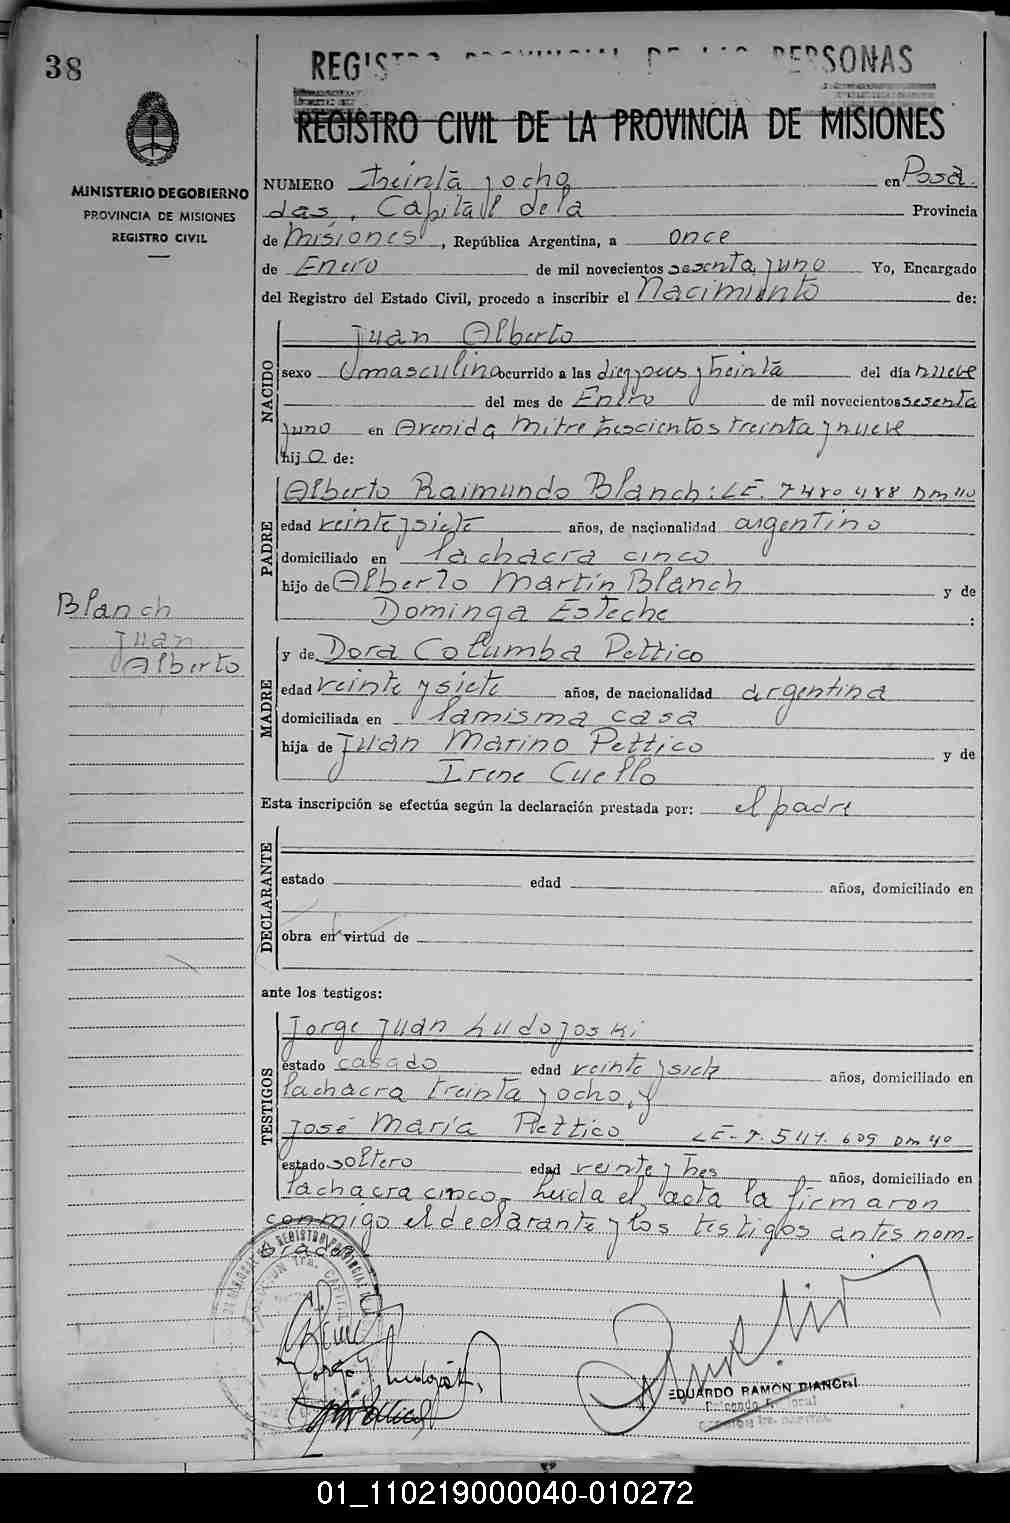 38
REGISTRO PROVINCIAL DE LAS PERSONAS
REGISTRO CIVIL DE LA PROVINCIA DE MISIONES
MINISTERIO DE GOBIERNO
PROVINCIA DE MISIONES
REGISTRO CIVIL
NUMERO treinta y ocho en Posa-
das, Capital de la Provincia
de Misiones, República Argentina, a once
de Enero de mil novecientos sesenta y uno Yo, Encargado
del Registro del Estado Civil, procedo a inscribir el Nacimiento de:
NACIDO
Juan Alberto
sexo masculino ocurrido a las y treinta del día nueve
del mes de Enero de mil novecientos sesenta
y uno en Avenida Mitre trescientos treinta y nueve
hijo de:
PADRE
Alberto Raimundo Blanch: LE. 7480488 DM 40
edad veinte y siete años, de nacionalidad argentino
domiciliado en la chacra cinco
hijo de Alberto Martín Blanch y de
Dominga Esteche :
Blanch
Juan
Alberto
MADRE
y de Dora Columba Pettico
edad veinte y siete años, de nacionalidad argentina
domiciliada en la misma casa
hija de Juan Marino Pettico y de
Irene Cuello
Esta inscripción se efectúa según la declaración prestada por: el padre
DECLARANTE
estado edad años, domiciliado en
obra en virtud de
ante los testigos:
TESTIGOS
Jorge Juan Ludojoski
estado casado edad veinte y siete años, domiciliado en
la chacra treinta y ocho, y
José María Pettico LE-7.547.609 DM 40
estado soltero edad veinte y tres años, domiciliado en
la chacra cinco- Leída el acta la firmaron
conmigo el declarante y los testigos antes nom-
brados
EDUARDO RAMON BIANCHI
01_110219000040-010272